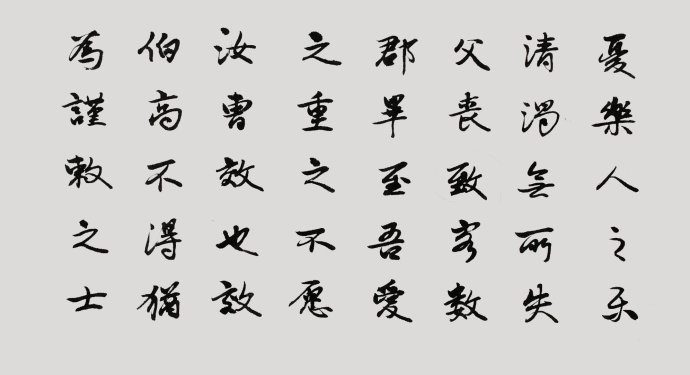 憂樂人之樂
清濁無所失
父喪致客數
郡畢至吾愛
之重之不愿
汝曹效也效
伯高不得猶
為謹敕之士